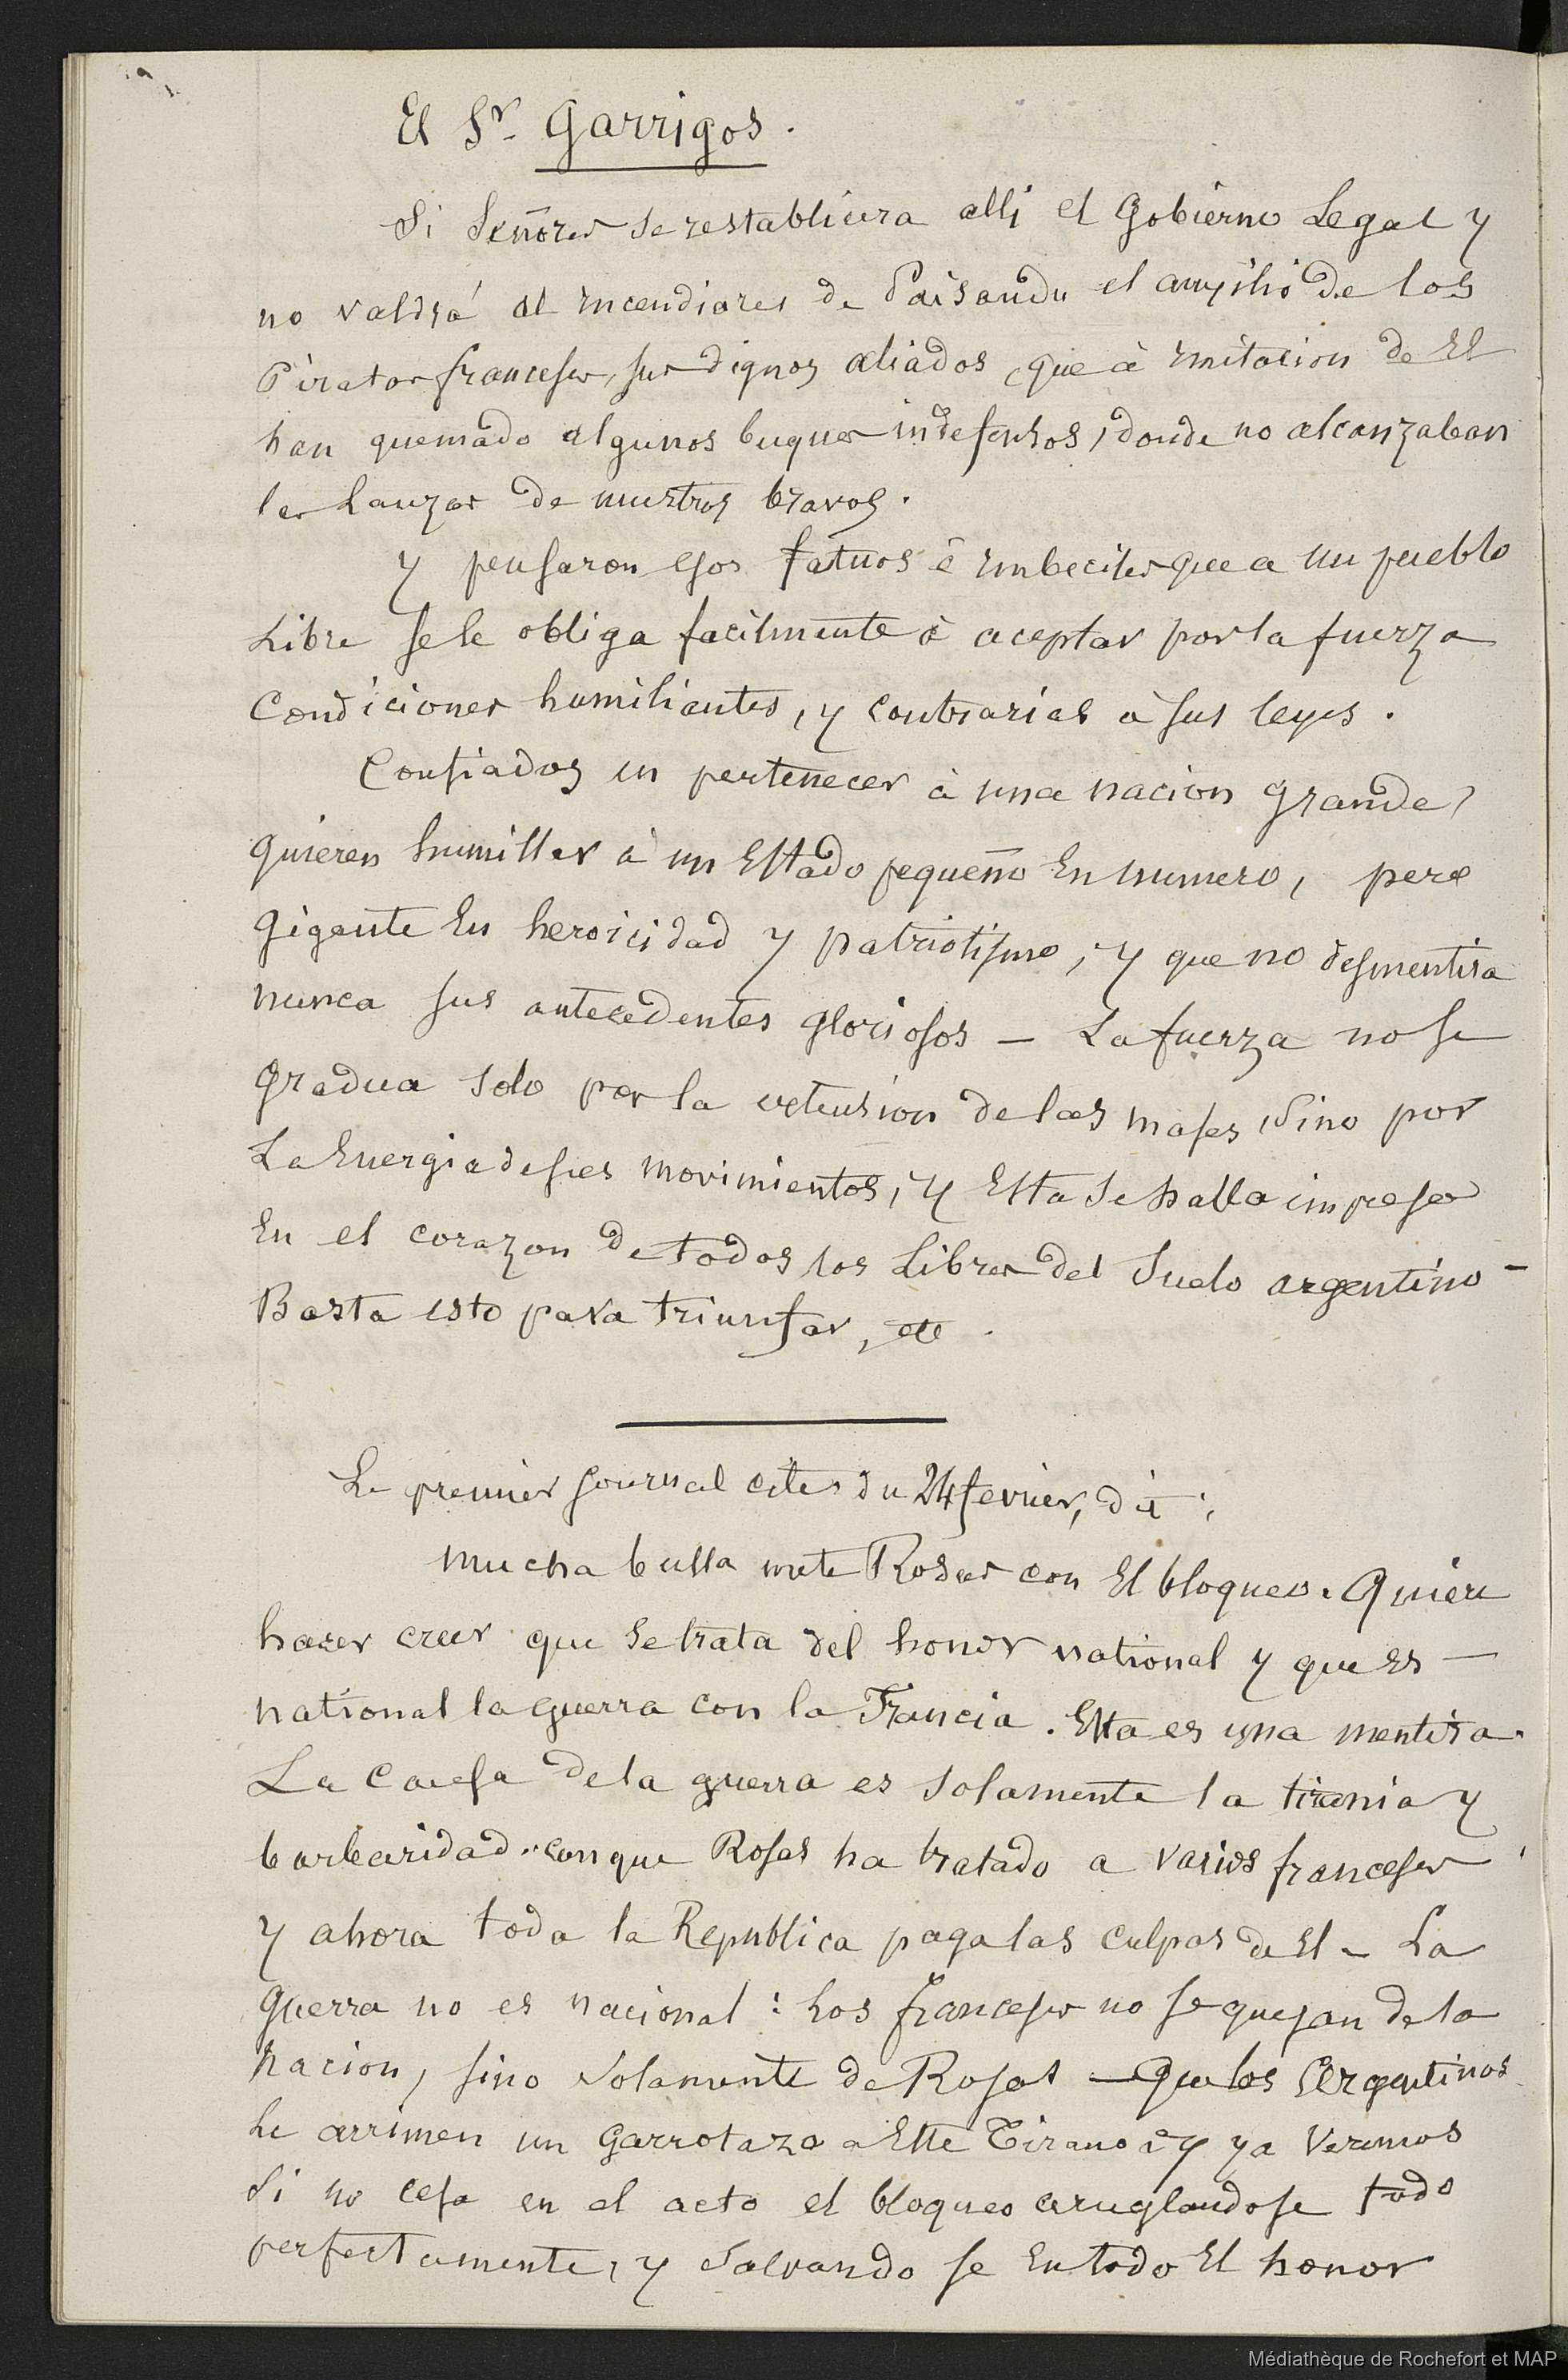 El Sr. Garrigos.
Si Señores se restabliura alli el Gobierno Legal y
no valdrá al incendiares de Paisandu el auxilio de los
Piratas franceses, sus dignos aliados, que à imitacion de El
han quemado algunos buques indefensos, donde no alcanzaban
las Lanzas de nuestros bravos.
y pensaron esos fatuos é imbeciles que a un pueblo
Libre se le obliga facilmente à aceptar por la fuerza
Condiciones humiliantes, y contrarias à sus leyes.
Confiados en pertenecer à una nacion grande,
quieren humillar à un Estado pequeño En numero, pero
gigante En heroicidad y patriotismo, y que no desmentira
nunca sus antecedentes gloriosos — La fuerza no se
gradua solo por la extension de las masas, Sino por
La Energia de sus movimientos, y Esta se halla impresa
En el corazon de todos los Libres del Suelo argentino —
Basta esto para triunfar, etc.
Le premier Journal cité, du 24 fevrier, dit:
mucha bulla mete Rosas con El bloqueo. Quiere
hacer creer que se trata del honor national y que Es —
national la guerra con la Francia. Esta es una mentira.
La Causa de la guerra es solamente la tirania y
barbaridad con que Rosas ha tratado a varios franceses
y ahora toda la Republica paga las culpas de El — La
guerra no es nacional: Los franceses no se quejan de la
nacion, sino solamente de Rosas — Que los Argentinos
le arrimen un garrotazo a Este Tirano y ya Veremos
Si no cesa en el acto el bloqueo arreglandose todo
perfectamente, y salvando se En todo El honor
Médiathèque de Rochefort et MAP